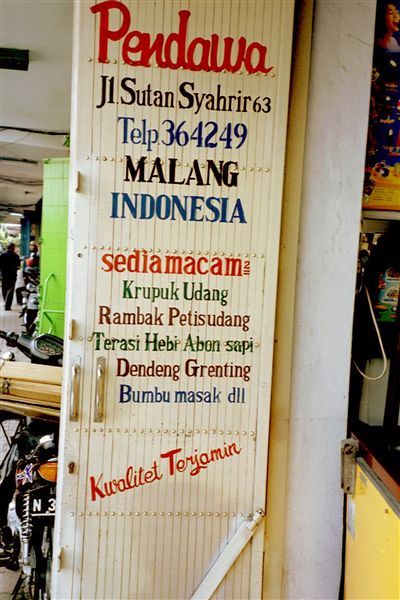 Pendawa
Jl Sutan Syahrir 63
Telp 364249
MALANG
INDONESIA
sediamacam2
Krupuk Udang
Rambak Petisudang
Terasi Hebi Abon sapi
Dendeng Grenting
Bumbu masak dll
Kwalitet Terjamin
N 3